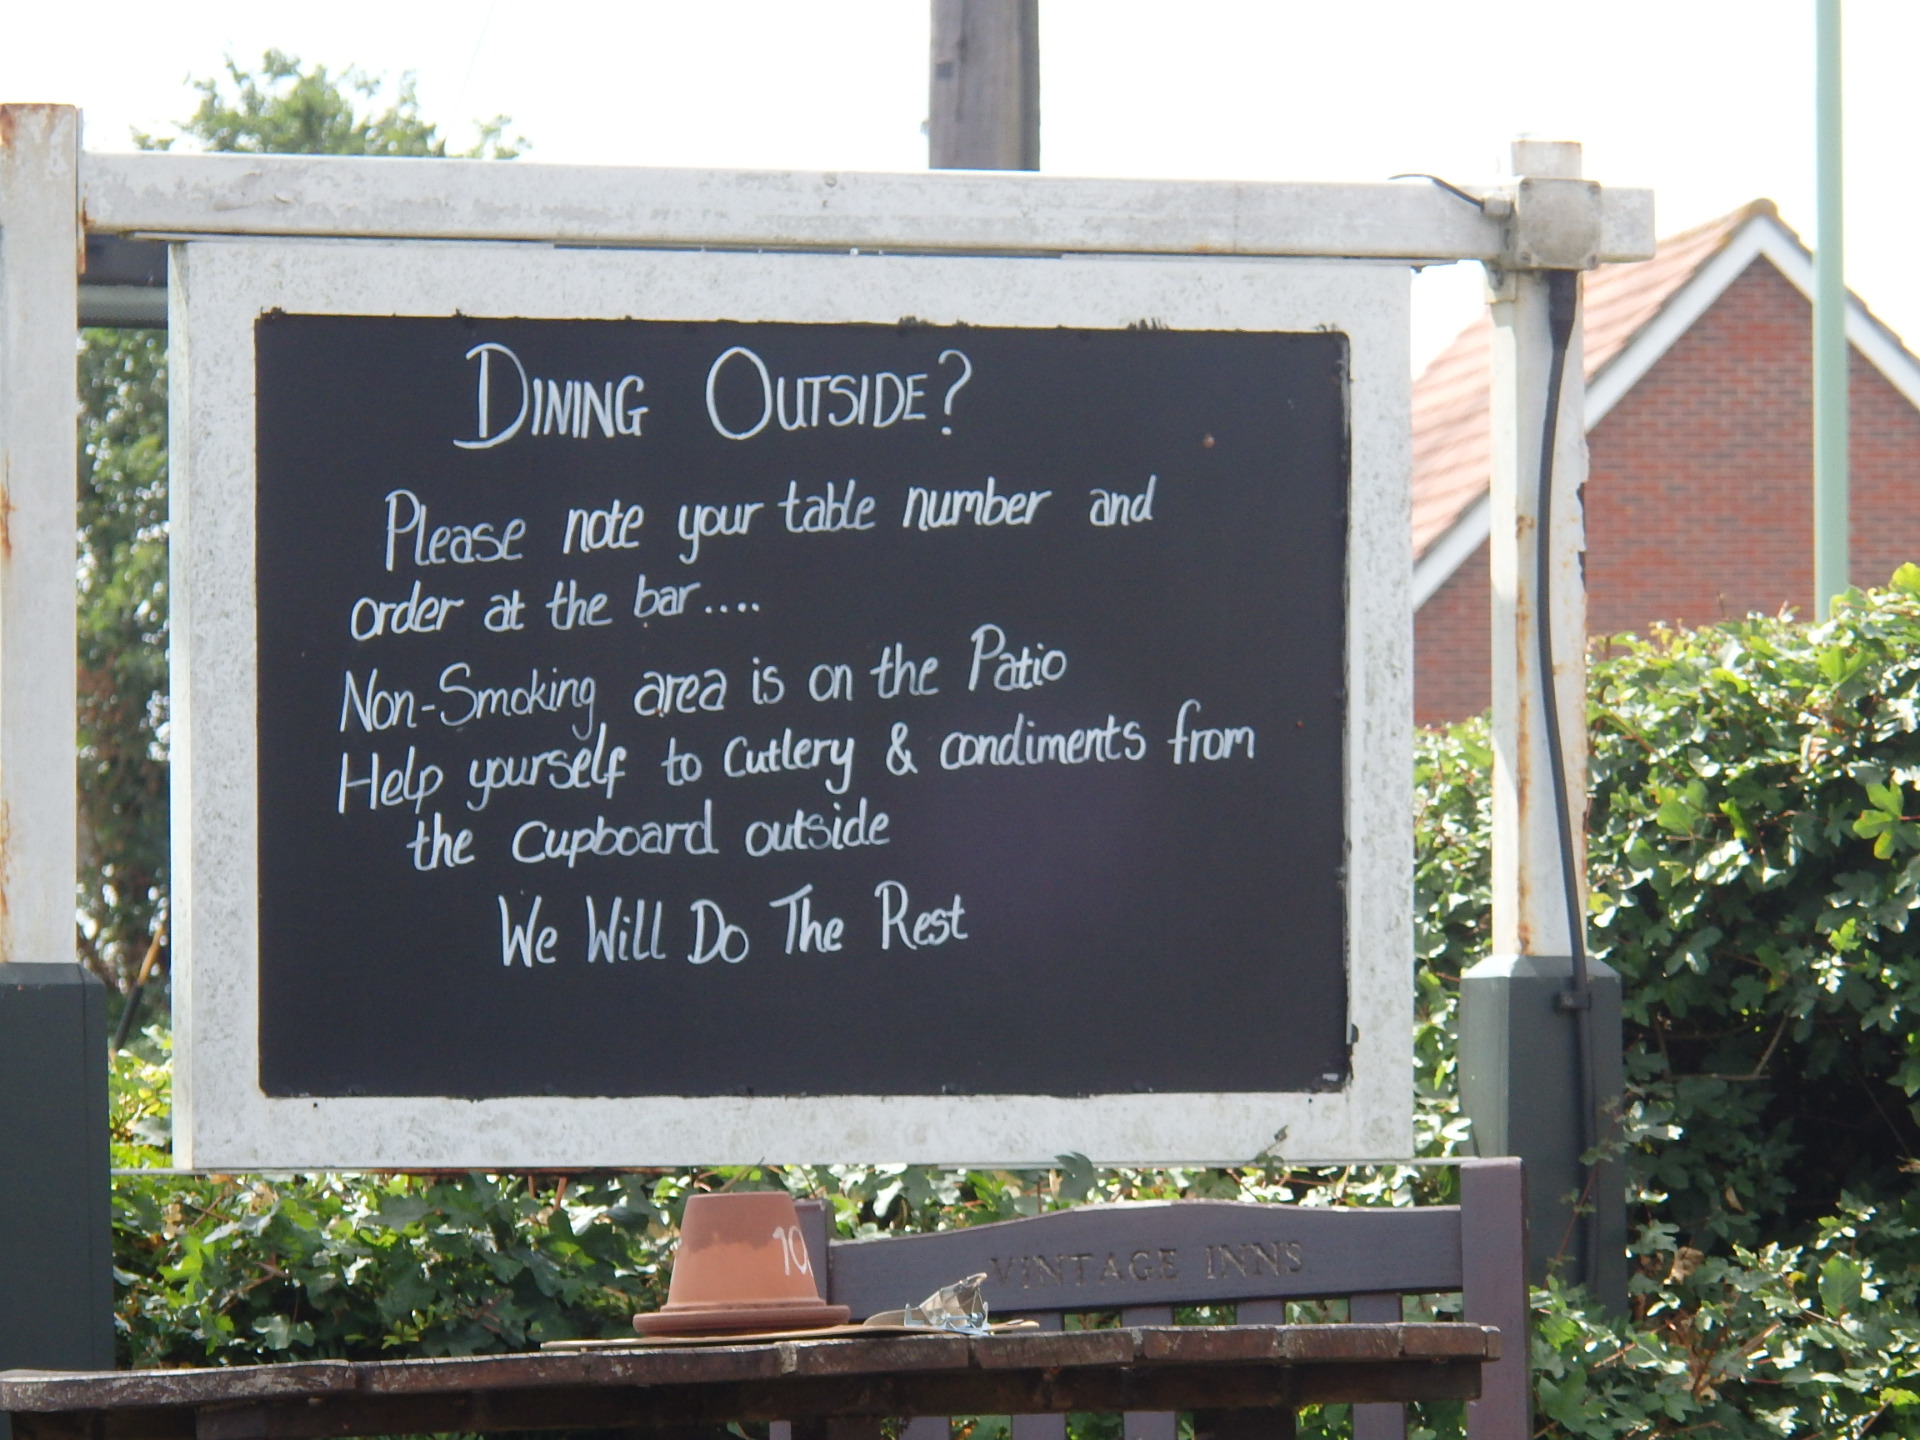 DINING OUTSIDE?
Please note your table number and
order at the bar....
Non-Smoking area is on the Patio
Help yourself to cutlery & condiments from
the cupboard outside
We Will Do The Rest
10
VINTAGE INNS